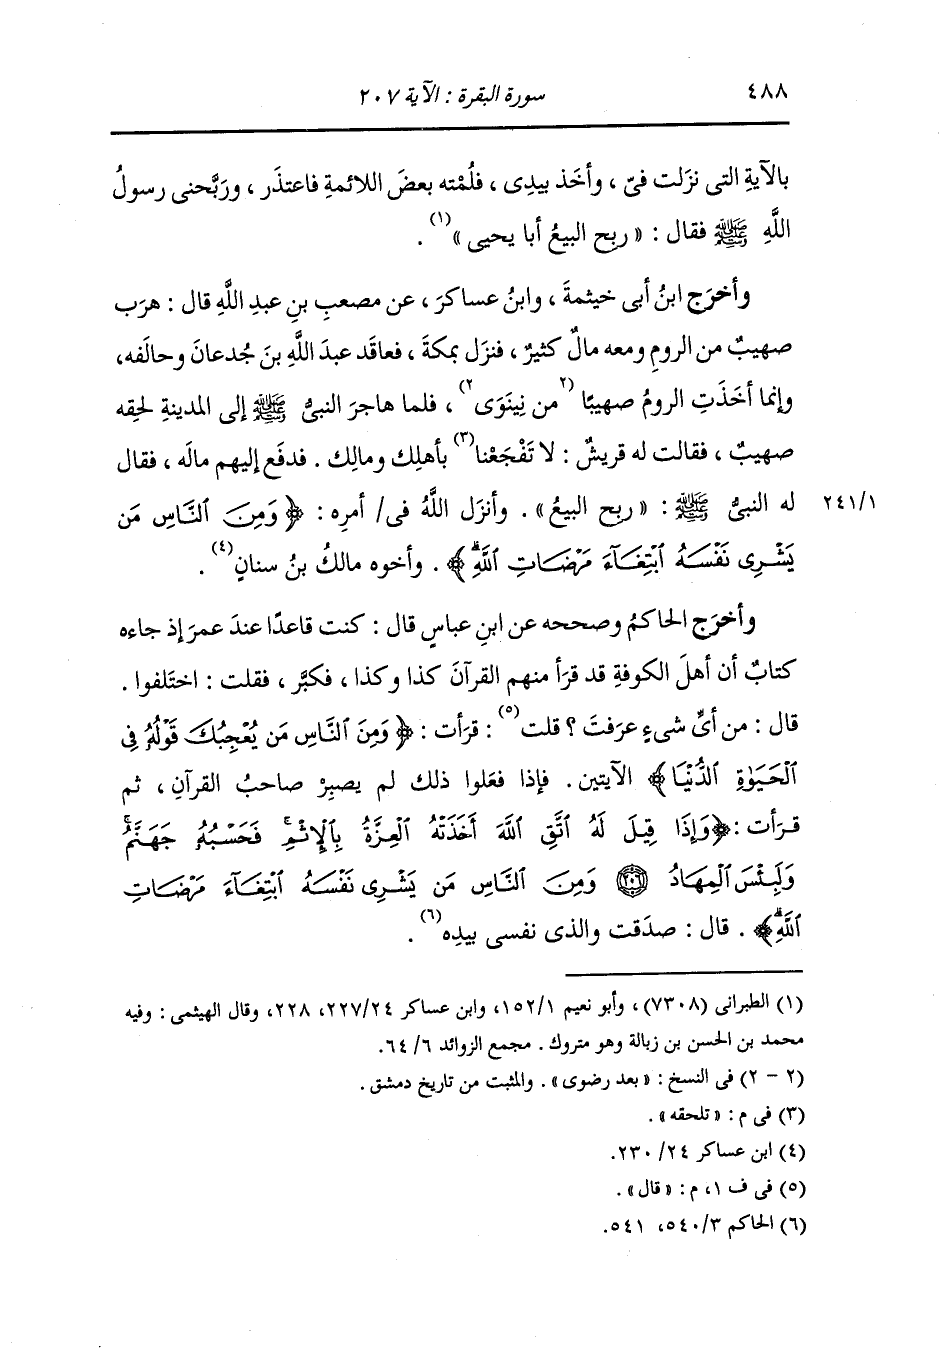 ٤٨٨ سورة البقرة : الآية ٢٠٧
بالآيةِ التى نزَلت فىّ ، وأخَذ بيدِى ، فلُمْته بعضَ اللائمةِ فاعتذَر ، ورَبَّحنى رسولُ
اللَّهِ ﷺ فقال : « ربِح البيعُ أبا يحيى »(١) .
وأخرَج ابنُ أبى خيثمةَ ، وابنُ عساكرَ ، عن مصعبِ بنِ عبدِ اللَّهِ قال : هرَب
صهيبٌ من الرومِ ومعه مالٌ كثيرٌ ، فنزَل بمكةَ ، فعاقَد عبدَ اللَّهِ بنَ جُدعانَ وحالَفه،
وإنما أخَذَتِ الرومُ صهيبًا (٢من نِينَوَى٢) ، فلما هاجرَ النبىُّ ﷺ إلى المدينةِ لحِقه
صهيبٌ ، فقالت له قريشٌ : لا تَفْجَعْنا(٣) بأهلِك ومالِك . فدفَع إليهم مالَه ، فقال
له النبىُّ ﷺ : « ربِح البيعُ» . وأنزَل اللَّهُ فى/ أمرِه : ﴿ وَمِنَ ٱلنَّاسِ مَن ٢٤١/١
يَشْرِى نَفْسَهُ ٱبْتِغَآءَ مَرْضَاتِ ٱللَّهِۗ ﴾ . وأخوه مالكُ بنُ سنانٍ(٤) .
وأخرَج الحاكمُ وصححه عن ابنِ عباسٍ قال : كنت قاعدًا عندَ عمرَ إذ جاءه
كتابٌ أن أهلَ الكوفةِ قد قرَأ منهم القرآنَ كذا وكذا ، فكبَّر ، فقلت : اختَلفوا .
قال : من أىِّ شىءٍ عرَفتَ ؟ قلت(٥) : قرَأت : ﴿ وَمِنَ ٱلنَّاسِ مَن يُعْجِبُكَ قَوْلُهُۥ فِى
ٱلْحَيَوٰةِ ٱلدُّنْيَا ﴾ الآيتين . فإذا فعَلوا ذلك لم يصبِرْ صاحبُ القرآنِ ، ثم
قرَأت : ﴿ وَإِذَا قِيلَ لَهُ ٱتَّقِ ٱللَّهَ أَخَذَتْهُ ٱلْعِزَّةُ بِٱلْإِثْمِۚ فَحَسْبُهُۥ جَهَنَّمُۚ
وَلَبِئْسَ ٱلْمِهَادُ ٢٠٦ وَمِنَ ٱلنَّاسِ مَن يَشْرِى نَفْسَهُ ٱبْتِغَآءَ مَرْضَاتِ
ٱللَّهِۗ ﴾ . قال : صدَقت والذى نفسى بيدِه(٦) .
(١) الطبرانى (٧٣٠٨) ، وأبو نعيم ١٥٢/١، وابن عساكر ٢٢٧/٢٤، ٢٢٨، وقال الهيثمى : وفيه
محمد بن الحسن بن زبالة وهو متروك . مجمع الزوائد ٦/ ٦٤.
(٢ - ٢) فى النسخ : « بعد رضوى » . والمثبت من تاريخ دمشق .
(٣) فى م : « تلحقه » .
(٤) ابن عساكر ٢٤/ ٢٣٠.
(٥) فى ف ١، م : « قال » .
(٦) الحاكم ٥٤٠/٣، ٥٤١.